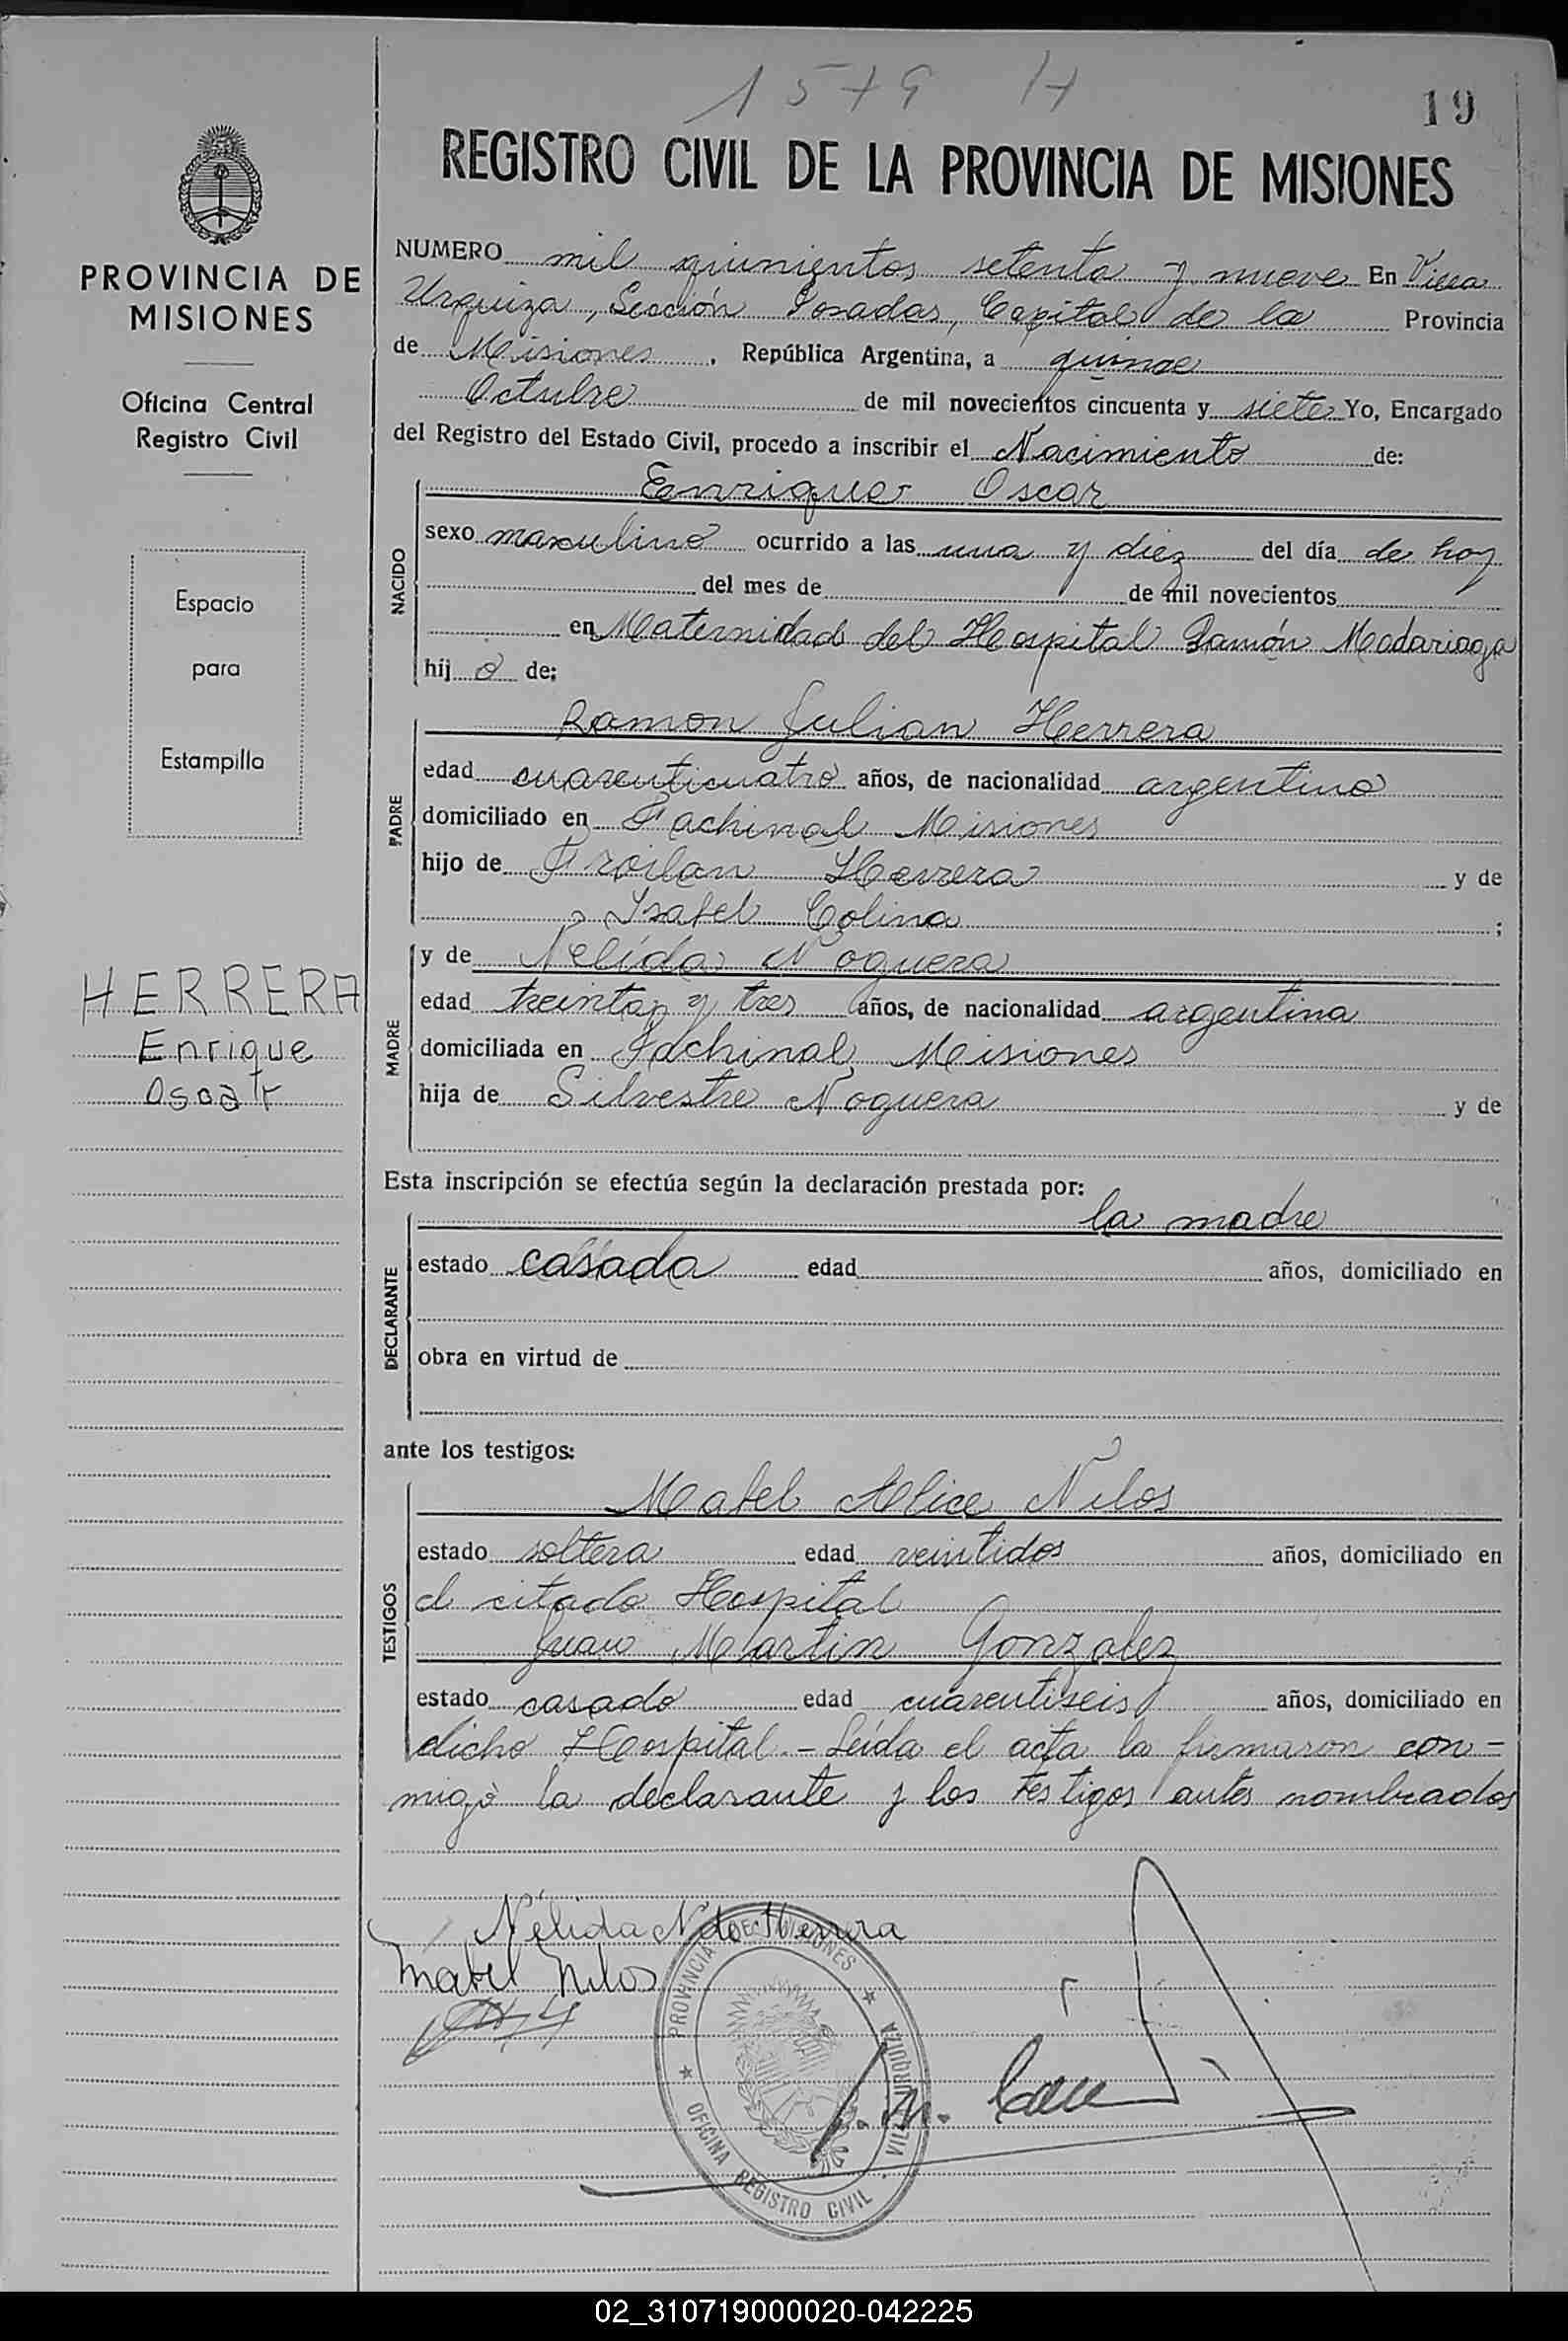 1579 H
19
REGISTRO CIVIL DE LA PROVINCIA DE MISIONES
PROVINCIA DE
MISIONES
Oficina Central
Registro Civil
Espacio
para
Estampilla
HERRERA
Enrique
Oscar
NUMERO mil quinientos setenta y nueve En Villa
Urquiza, Sección Posadas, Capital de la Provincia
de Misiones, República Argentina, a quince
Octubre de mil novecientos cincuenta y siete Yo, Encargado
del Registro del Estado Civil, procedo a inscribir el Nacimiento de:
NACIDO
Enrique Oscar
sexo masculino ocurrido a las una y diez del día de hoy
del mes de de mil novecientos
en Maternidad del Hospital Ramón Madariaga
hij o de:
PADRE
Ramon Julian Herrera
edad cuarenticuatro años, de nacionalidad argentino
domiciliado en Fachinal Misiones
hijo de Froilan Herrera y de
Isabel Colina ;
MADRE
y de Nélida Noguera
edad treinta y tres años, de nacionalidad argentina
domiciliada en Fachinal Misiones
hija de Silvestre Noguera y de
Esta inscripción se efectúa según la declaración prestada por:
DECLARANTE
la madre
estado casada edad años, domiciliado en
obra en virtud de
ante los testigos:
TESTIGOS
Mabel Alice Nilos
estado soltera edad veintidos años, domiciliado en
el citado Hospital
Juan Martin Gonzalez
estado casado edad cuarentiseis años, domiciliado en
dicho Hospital.- Leída el acta la firmaron con-
migo la declarante y los testigos antes nombrados
Nélida N de Herrera
Mabel Nilos
PROVINCIA DE MISIONES
OFICINA REGISTRO CIVIL
VILLA URQUIZA
02_310719000020-042225